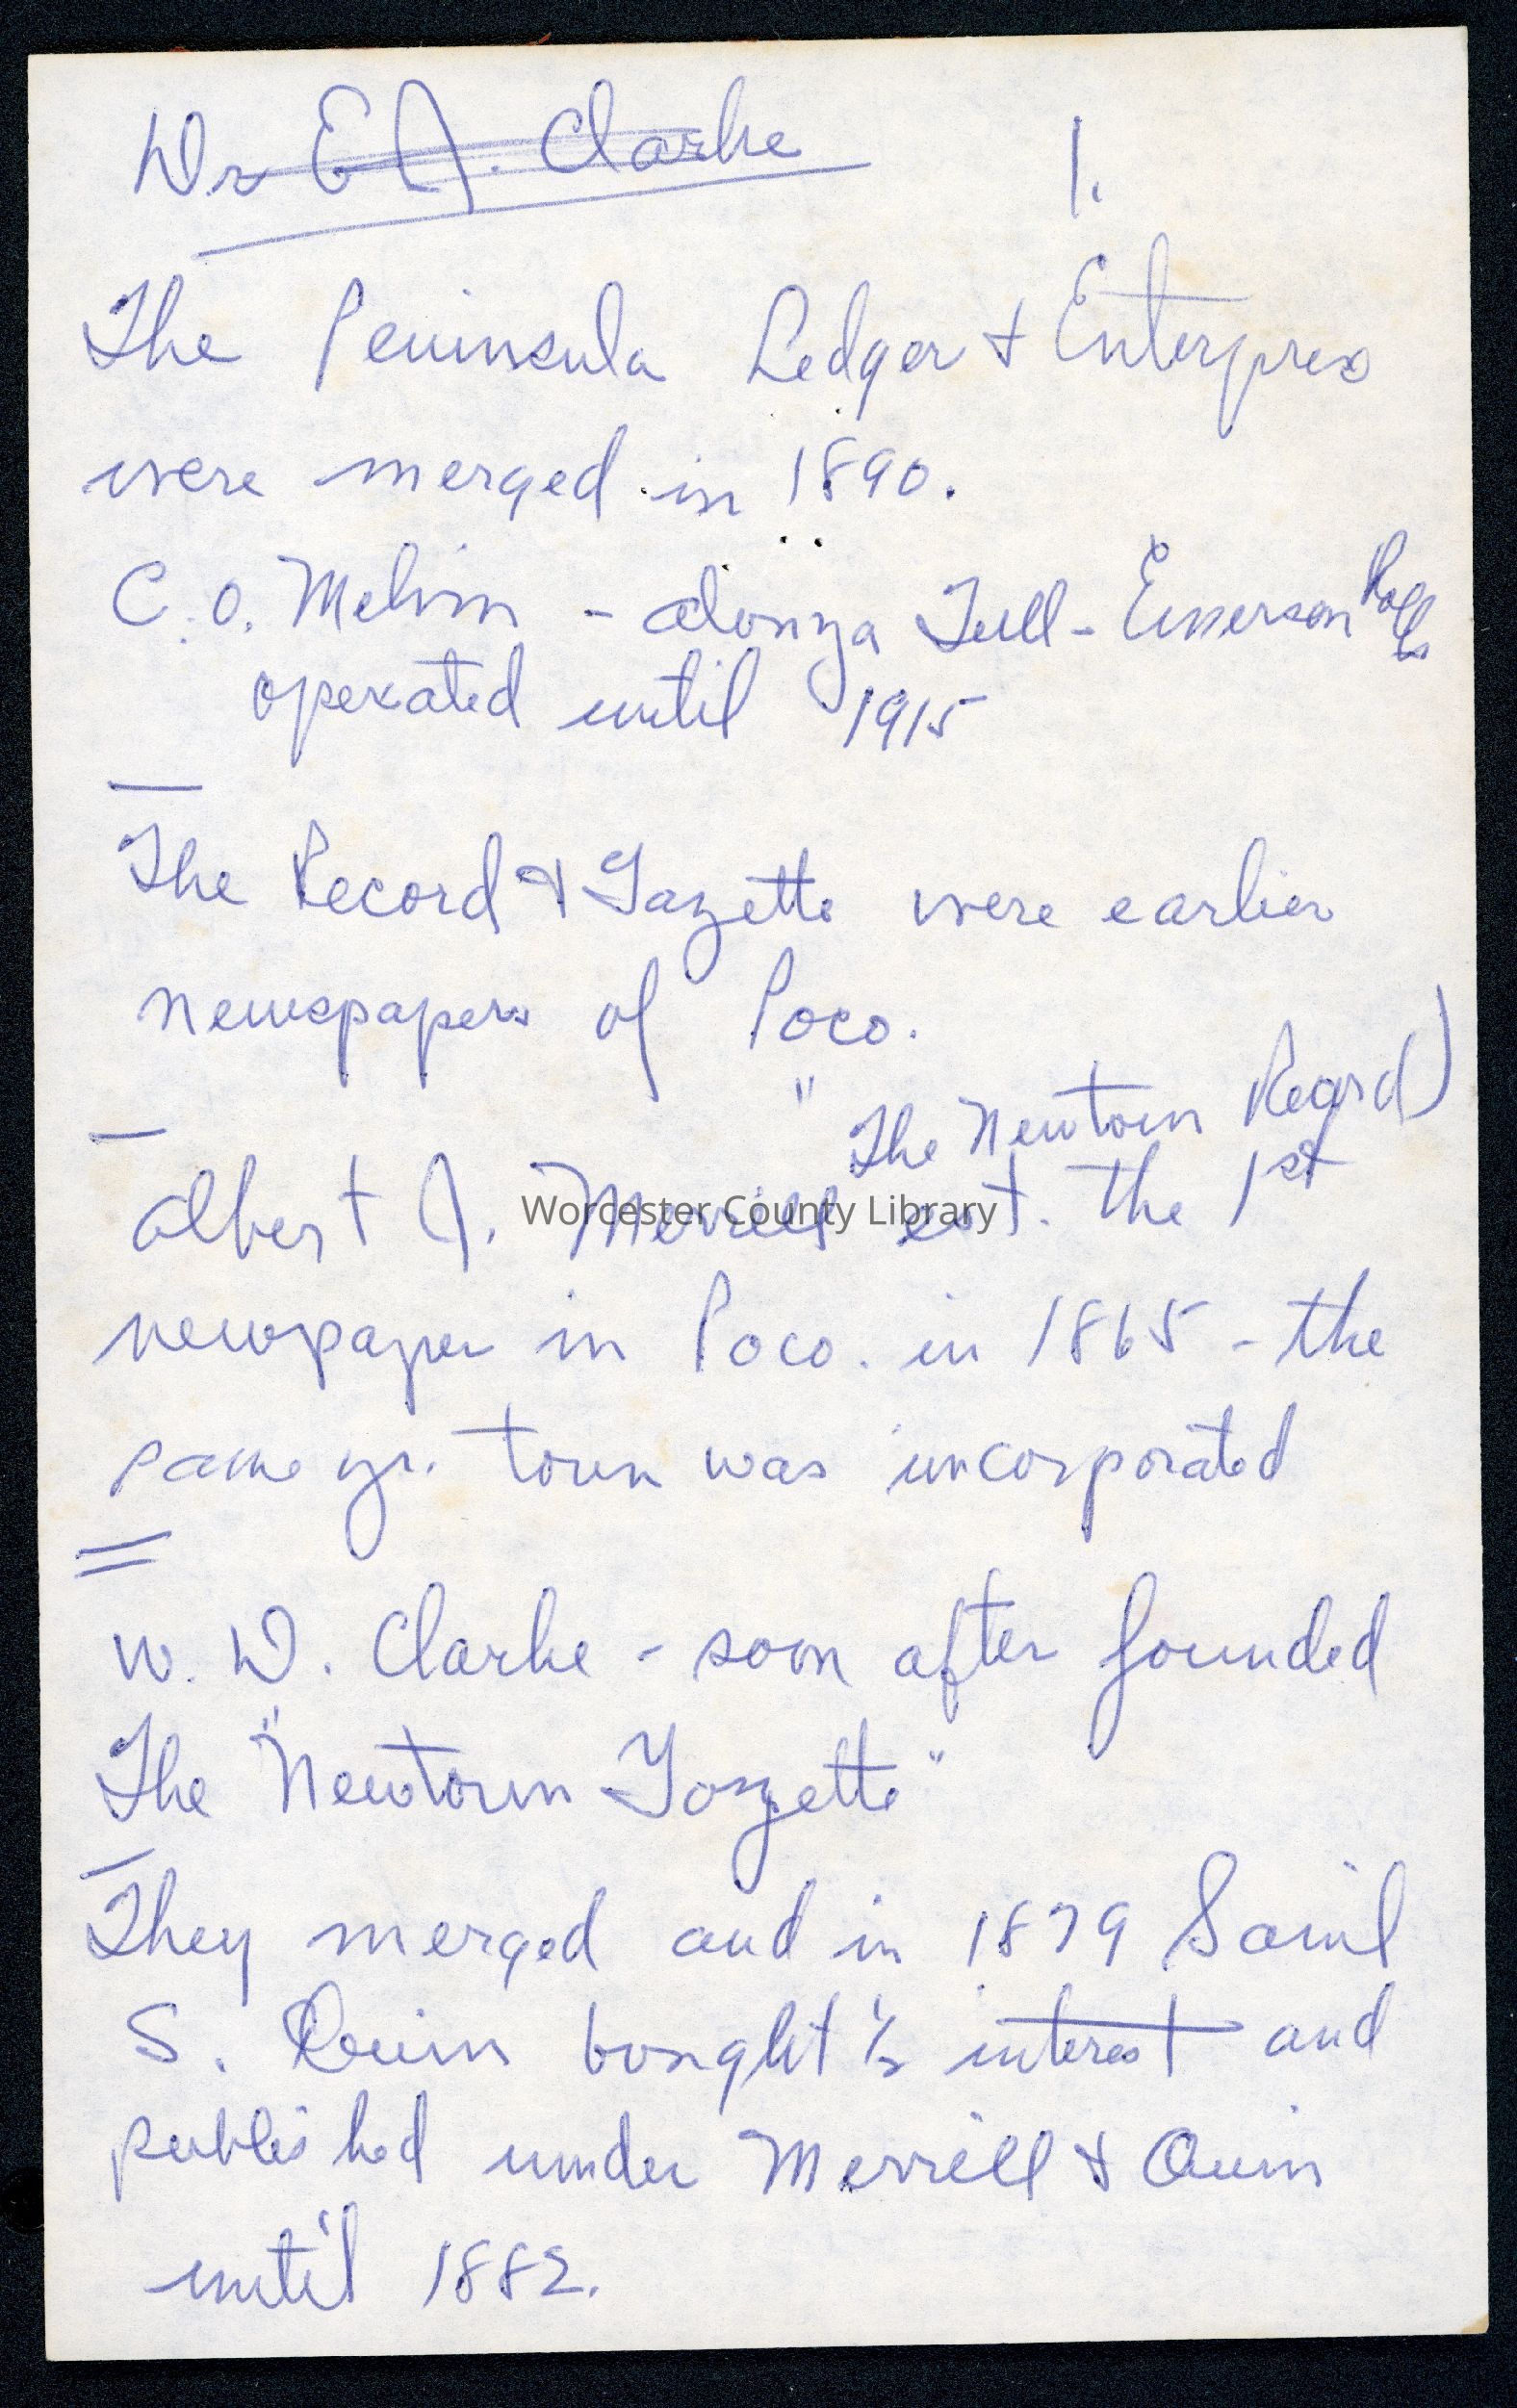 Dr E J. Clarke 1.
The Peninsula Ledger & Enterprise
were merged in 1890.
C. O. Melvin - Alonza Tull - Emerson
operated until 1915
The Record & Gazette were earlier
newspapers of Poco.
" The Newtown Record)
Albert J. Merrill est. the 1st
Worcester County Library
newspaper in Poco. in 1865 - the
same yr. town was incorporated
W. D. Clarke - soon after founded
The "Newtown Gazette"
They merged and in 1879 Saml
S. Quinn bought ½ interest and
published under Merrill & Quinn
until 1882.